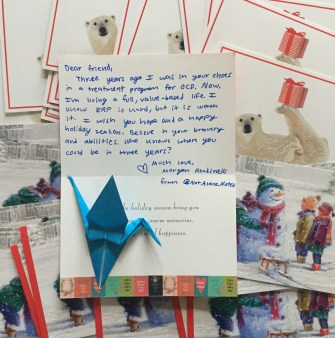 Dear friend,
Three years ago I was in your shoes
in a treatment program for OCD. Now,
I'm living a full, value-based life. I
know ERP is hard, but it is worth
it. I wish you hope and a happy
holiday season. Believe in your bravery
and abilities. Who knows where you
could be in three years?
♡ Much love,
Morgan
from
holiday season bring you
warm memories,
happiness.